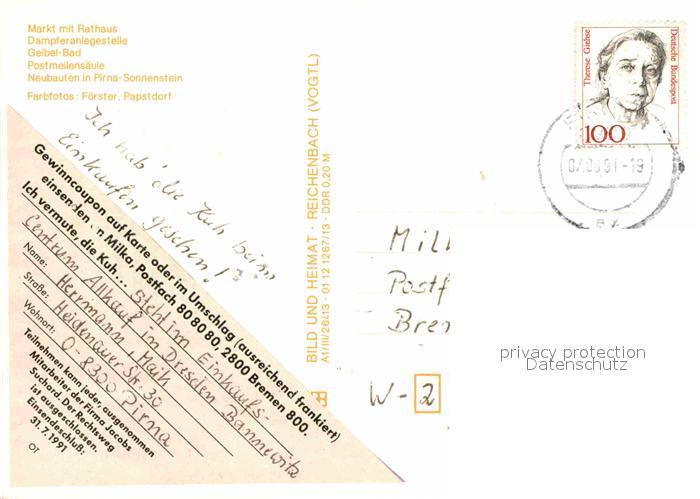 Markt mit Rathaus
Dampferanlegestelle
Geibel-Bad
Postmeilensäule
Neubauten in Pirna-Sonnenstein
Farbfotos: Förster, Papstdorf
Ich hab' die Kuh beim
Einkaufen gesehen!
Gewinncoupon auf Karte oder im Umschlag (ausreichend frankiert)
einsenden an Milka, Postfach 80 80 80, 2800 Bremen 800.
Ich vermute, die Kuh... steht im Einkaufs-
Centrum Allkauf in Dresden Bannewitz
Name: Herrmann, Maik
Straße: Heidenauer Str. 30
Wohnort: O-8300 Pirna
Teilnehmen kann jeder, ausgenommen
Mitarbeiter der Firma Jacobs
Suchard. Der Rechtsweg
ist ausgeschlossen.
Einsendeschluß:
31.7.1991
OT
BILD UND HEIMAT · REICHENBACH (VOGTL)
A1/III/26/13 · 01 12 1267/13 · DDR 0,20 M
Therese Giehse
Deutsche Bundespost
100
91-19
Mil
Postf
Bre
W-2
privacy protection
Datenschutz